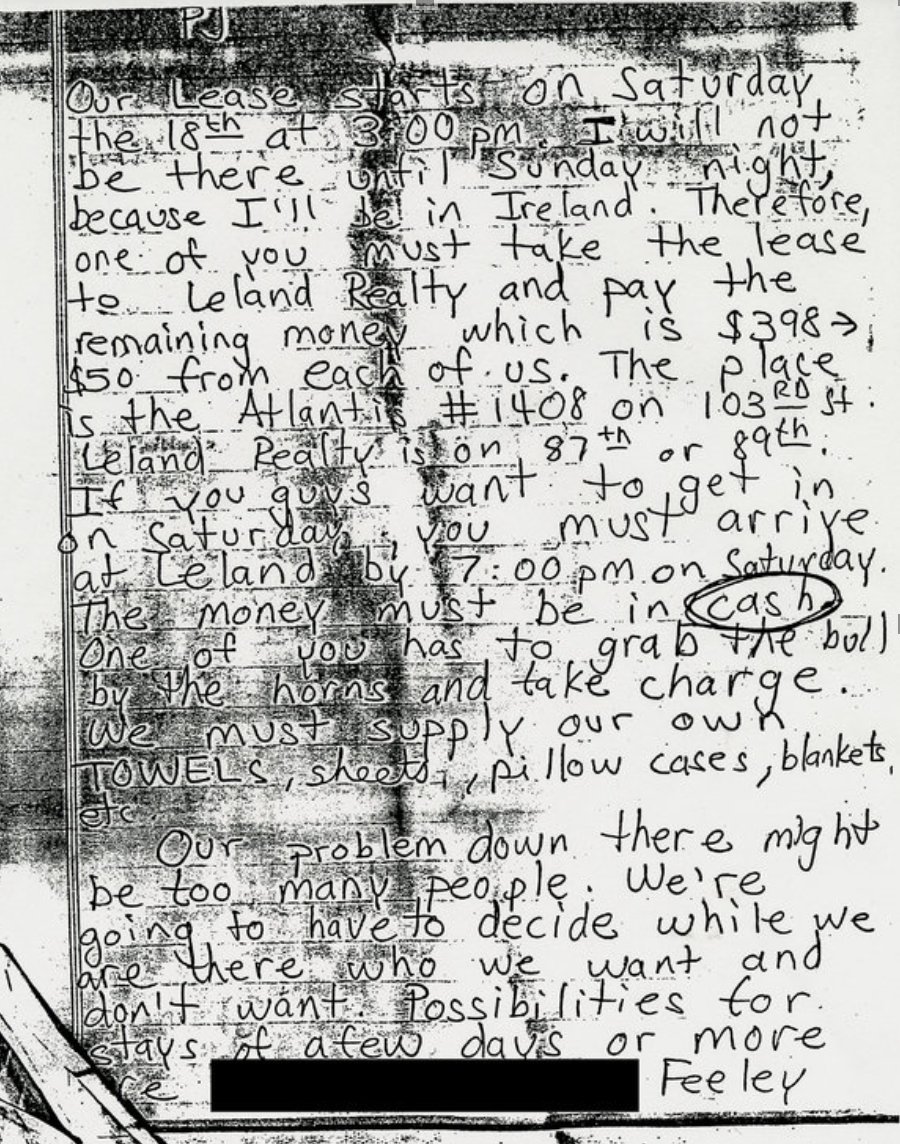 PJ
Our Lease starts on Saturday
the 18th at 3:00 pm. I will not
be there until Sunday night,
because I'll be in Ireland. Therefore,
one of you must take the lease
to Leland Realty and pay the
remaining money which is $398→
$50 from each of us. The place
is the Atlantis #1408 on 103RD St.
Leland Realty is on 87th or 89th.
If you guys want to get in
on Saturday, you must arrive
at Leland by 7:00 pm on Saturday.
The money must be in cash.
One of you has to grab the bull
by the horns and take charge.
We must supply our own
TOWELS, sheets, pillow cases, blankets,
etc.
Our problem down there might
be too many people. We're
going to have to decide while we
are there who we want and
don't want. Possibilities for
stays of a few days or more
are Feeley